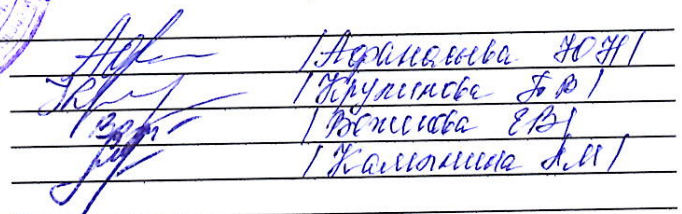 /Афанасьева ЮН/
/Крупинова ТВ/
/Вожикова ЕВ/
/Камынина АМ/